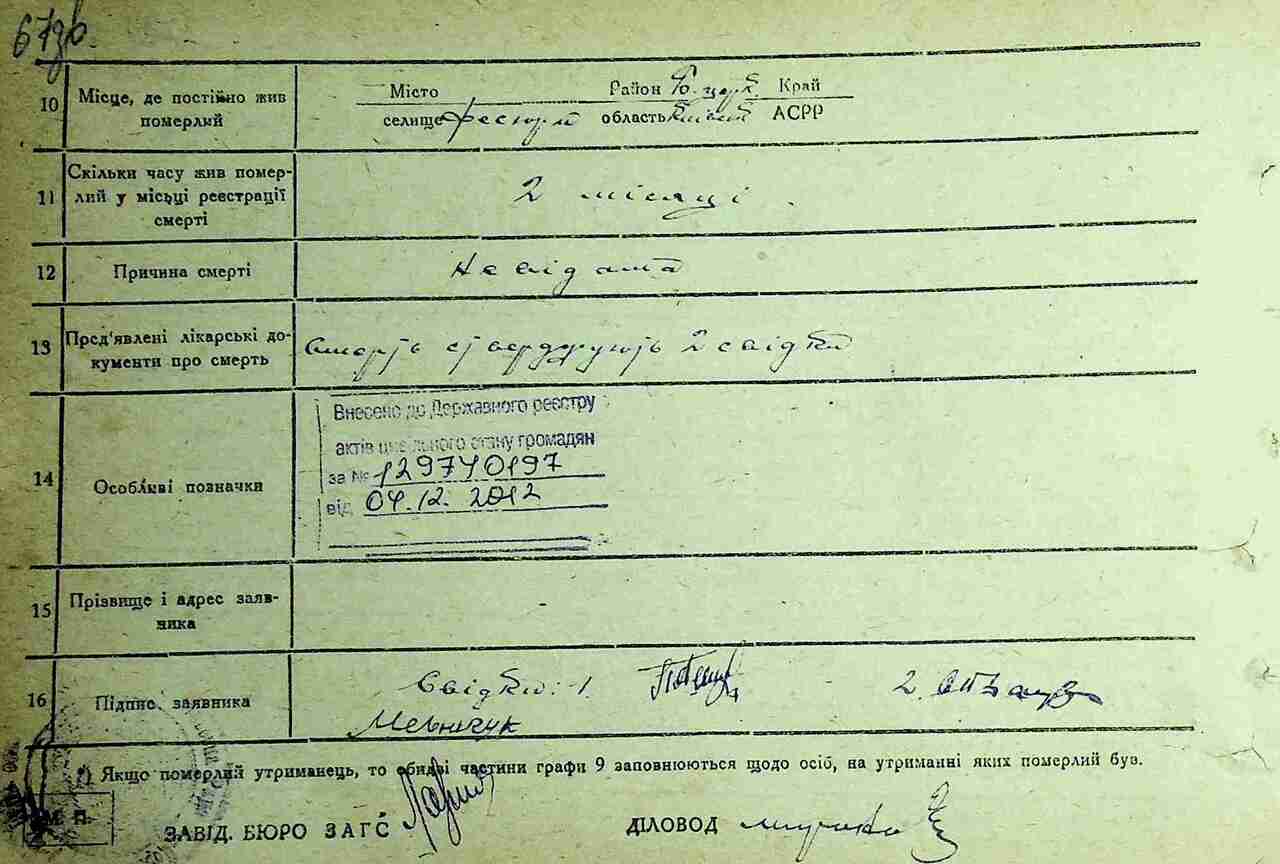 67зв.
10 Місце, де постійно жив Місто Район Б. церк. Край
померлий селище область Київськ АСРР
11 Скільки часу жив помер- 2 місяці.
лий у місьці реєстрації
смерті
12 Причина смерті Не відома
13 Пред'явлені лікарські до- Смерть стверджують 2 свідки
кументи про смерть
14 Особливі позначки
Внесено до Державного реєстру
актів цивільного стану громадян
за № 129740197
від 04.12.2012
15 Прізвище і адрес заяв-
ника
16 Підпис заявника Свідки: 1. 2.
Мельничук
*) Якщо померлий утриманець, то обидві частини графи 9 заповнюються щодо осіб, на утриманні яких померлий був.
М. П.
ЗАВІД. БЮРО ЗАГС ДІЛОВОД